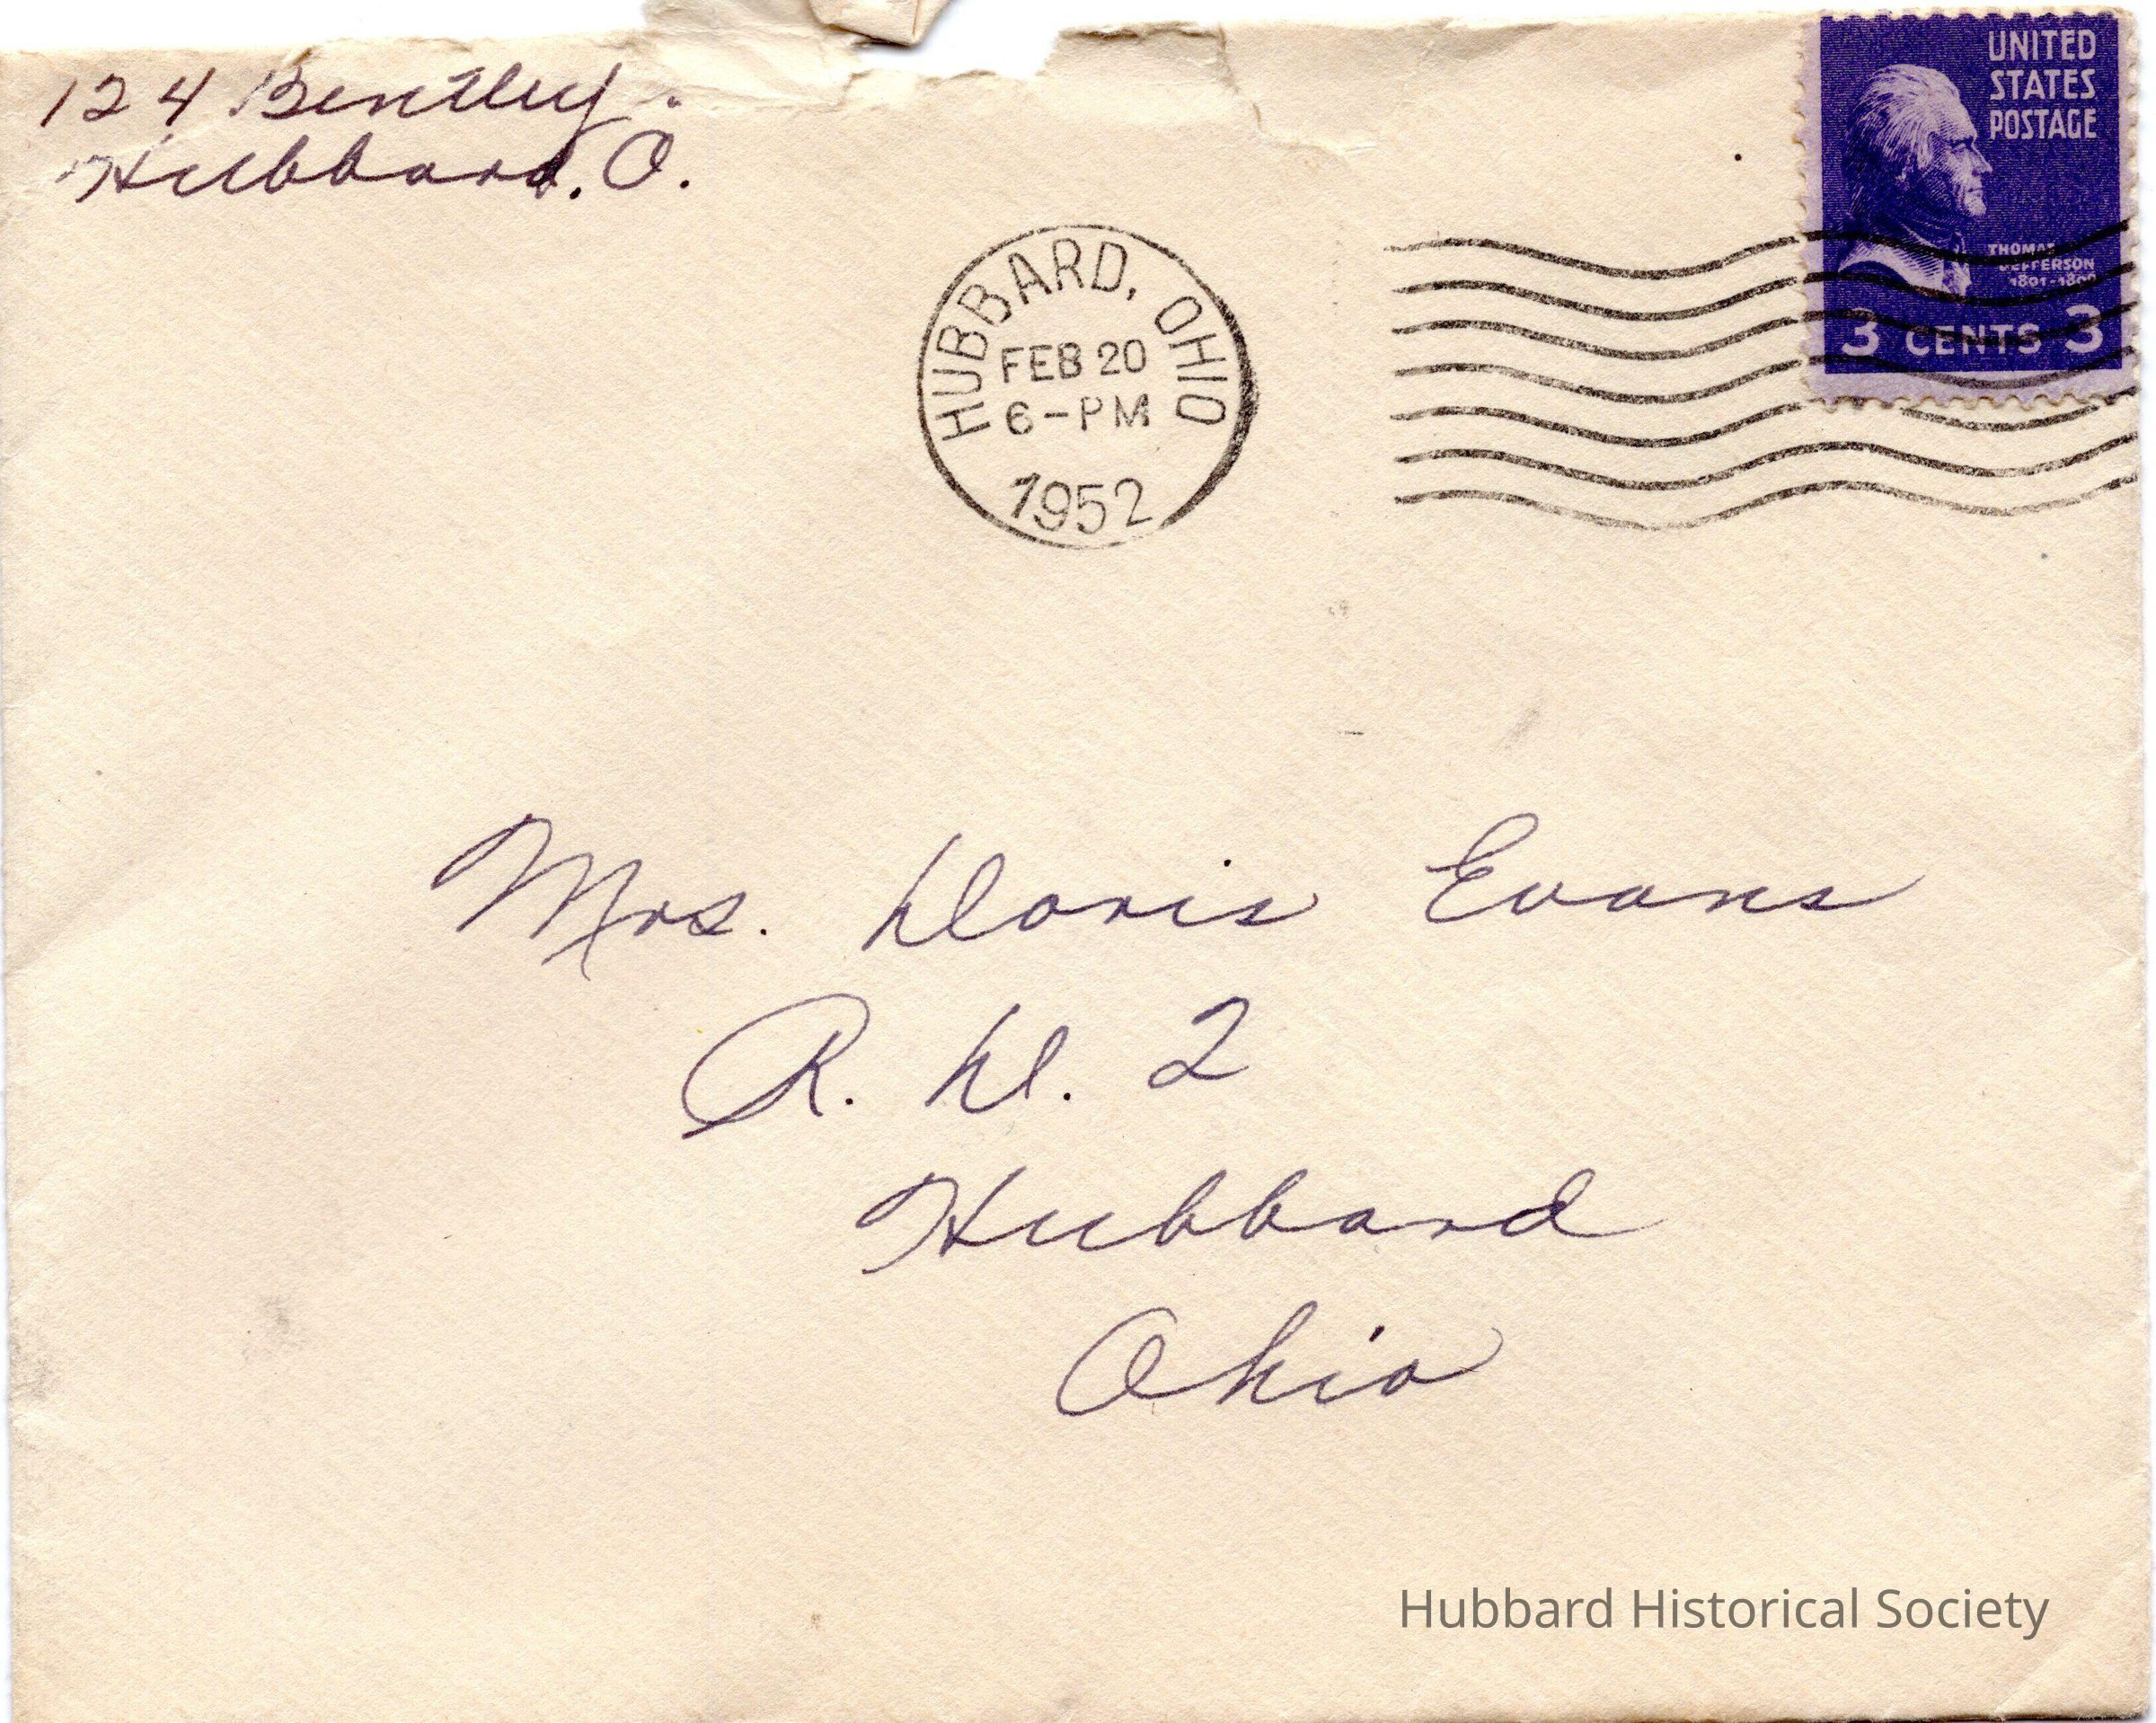 124 Bentley.
Hubbard, O.
UNITED
STATES
POSTAGE
THOMAS
JEFFERSON
1801-1809
3 CENTS 3
HUBBARD, OHIO
FEB 20
6-PM
1952
Mrs. Doris Evans
R. D. 2
Hubbard
Ohio
Hubbard Historical Society